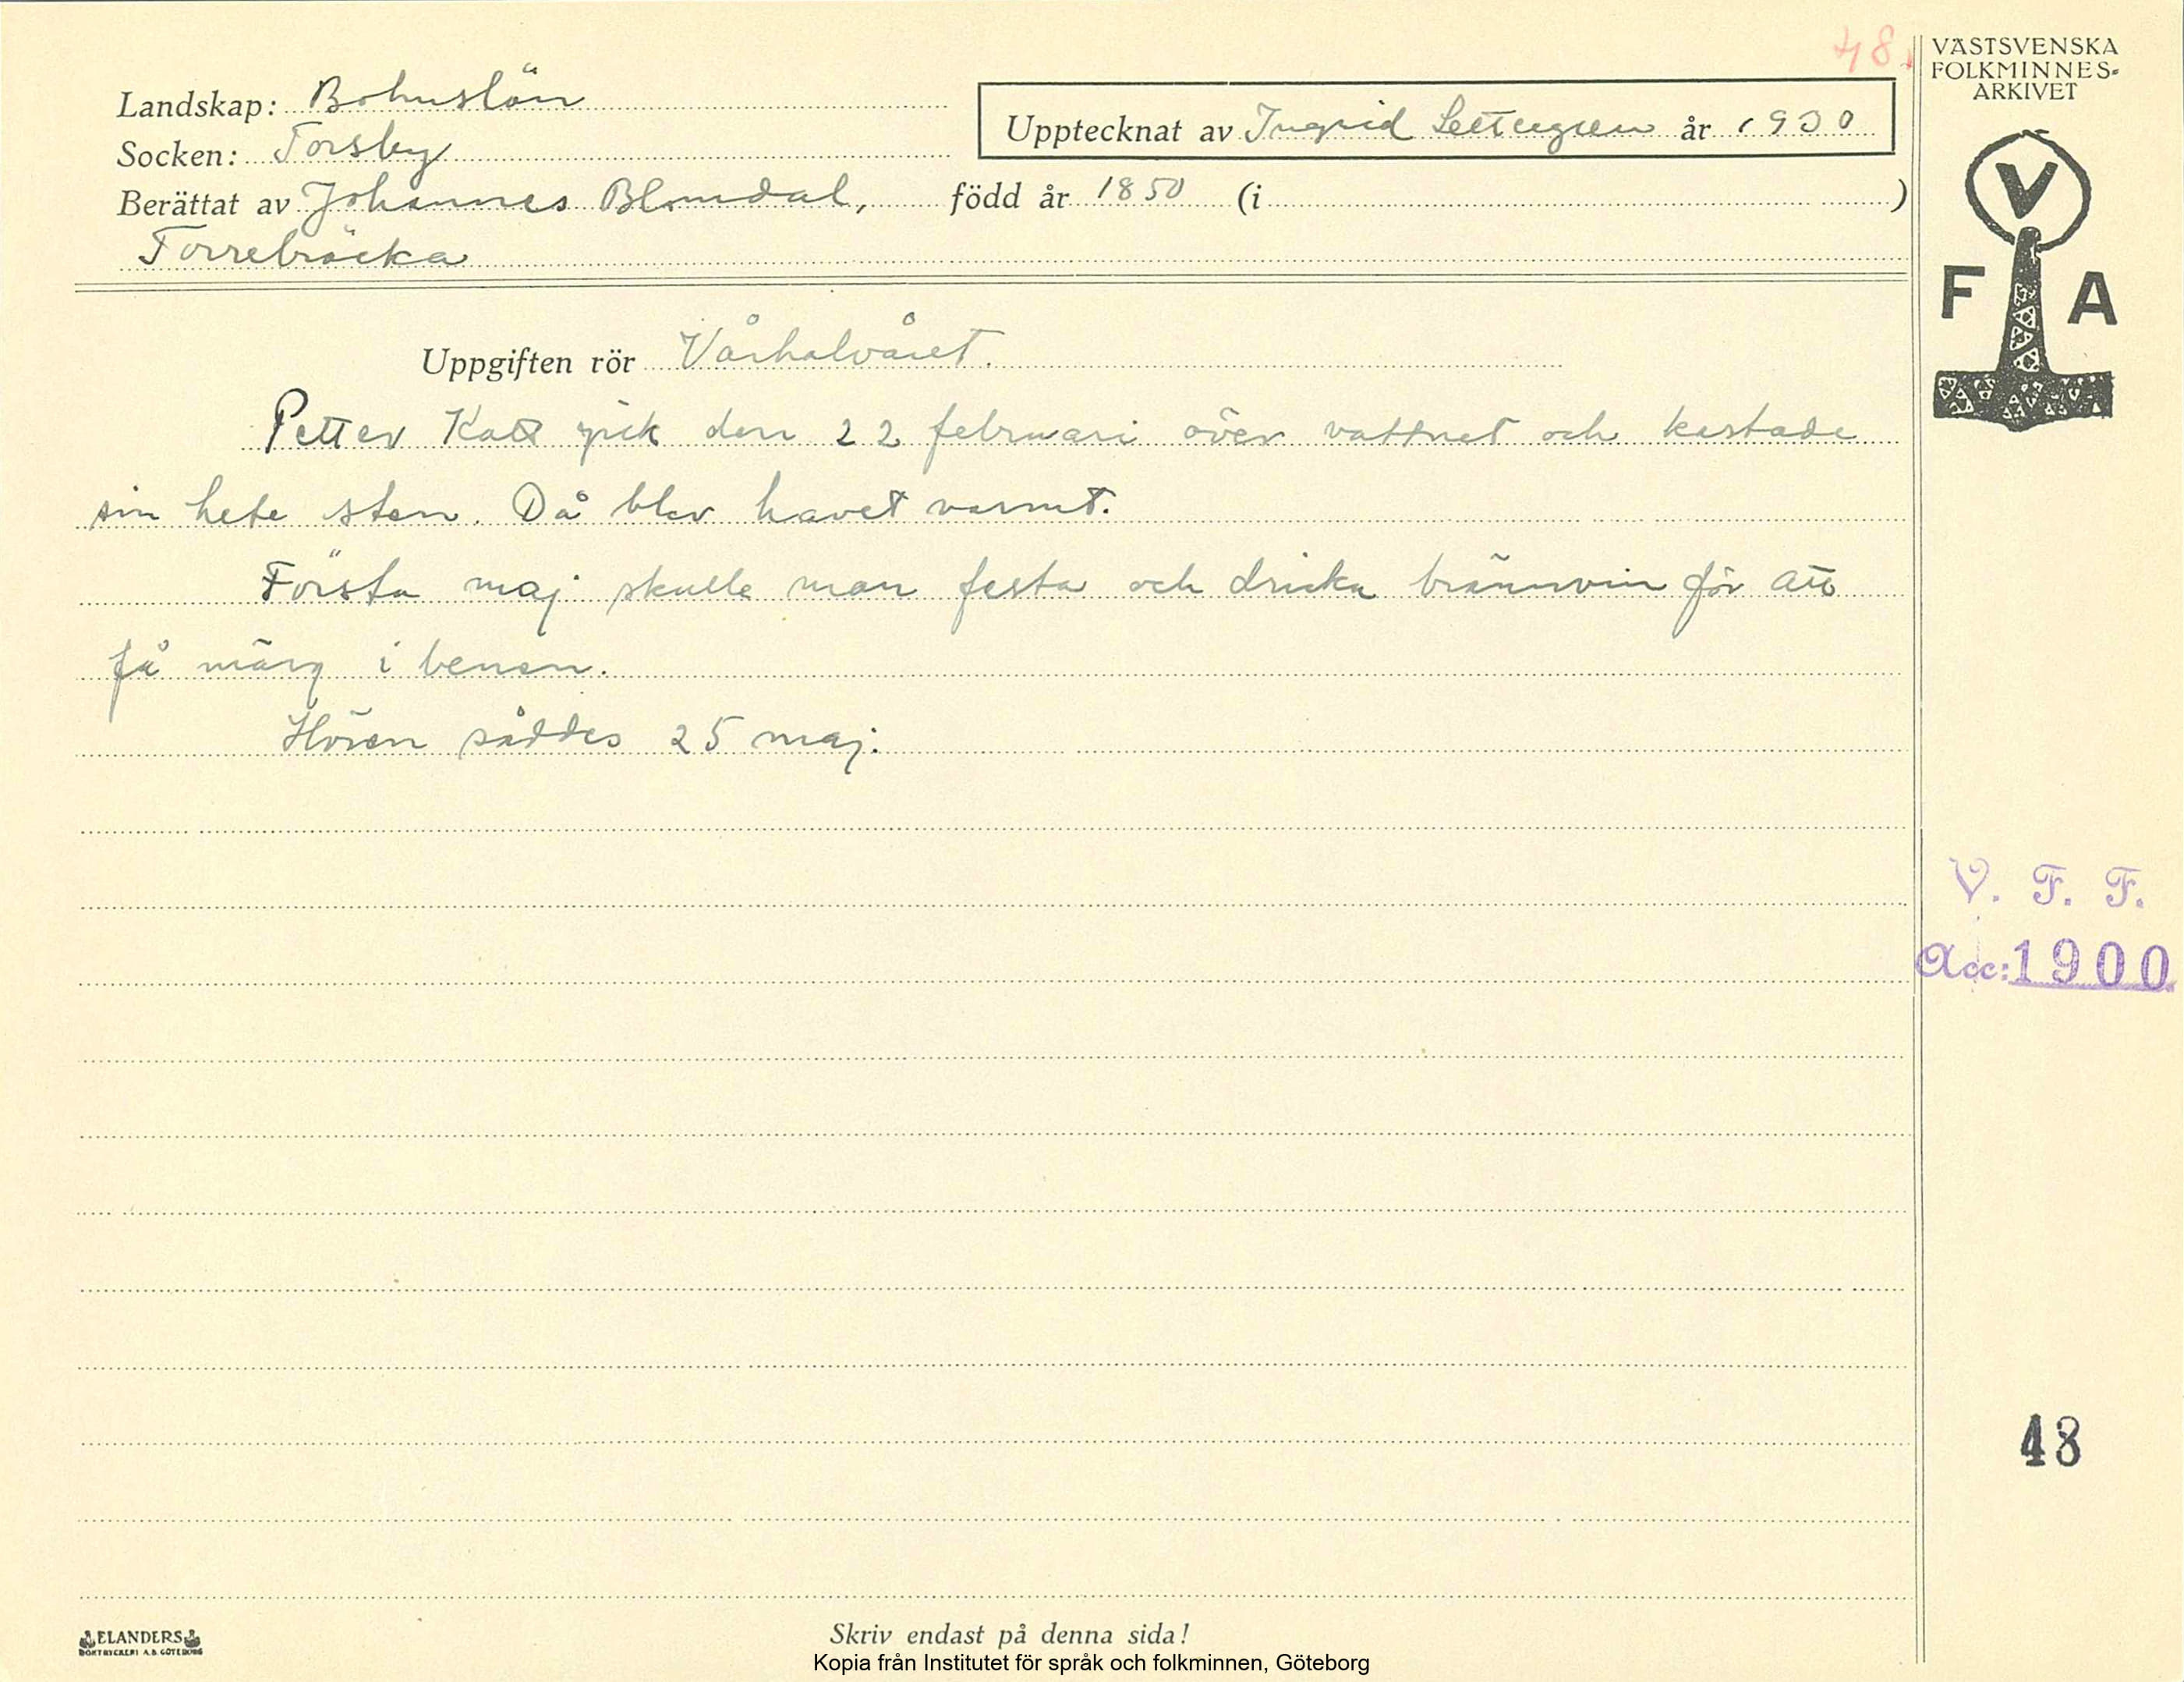 48.
VÄSTSVENSKA
FOLKMINNES-
ARKIVET
Landskap: Bohuslän
Upptecknat av Ingrid år 1930
Socken: Torsby
Berättat av Johannes Blomdal, född år 1850 (i )
Torrebräcka
V
F A
Uppgiften rör Vårhalvåret.
Petter Katt gick den 22 februari över vattnet och kastade
sin hete sten. Då blev havet varmt.
Första maj skulle man festa och dricka brännvin för att
få märg i benen.
Hören såddes 25 maj.
V. F. F.
Acc: 1900
48
ELANDERS
BOKTRYCKERI A.B. GÖTEBORG
Skriv endast på denna sida!
Kopia från Institutet för språk och folkminnen, Göteborg